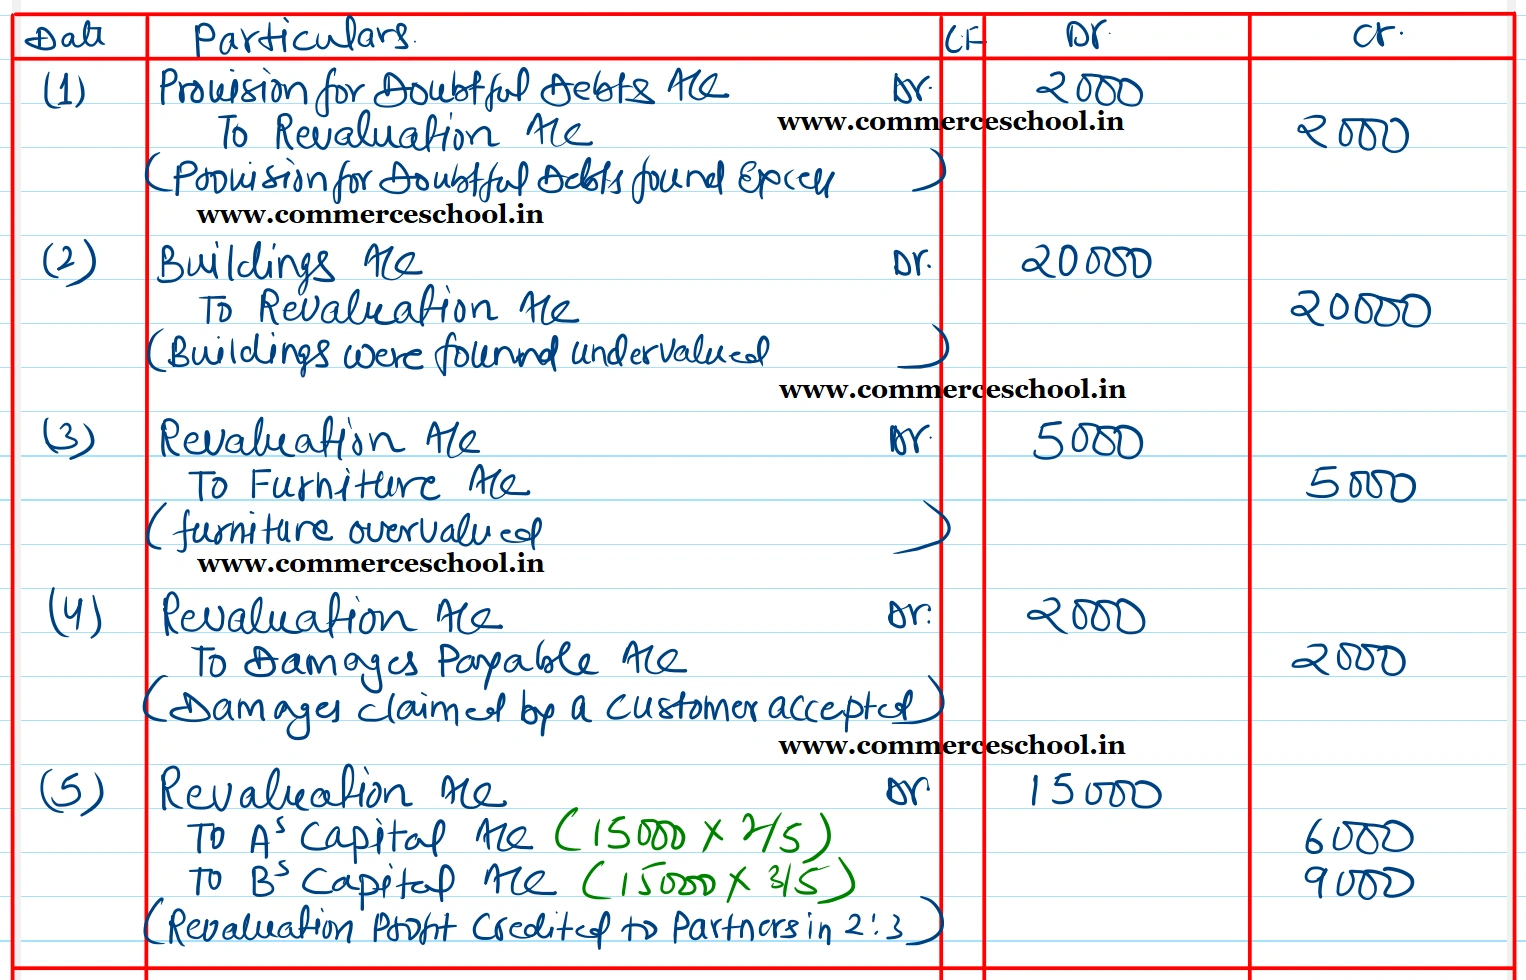 Date Particulars. LF Dr. Cr.
(1) Provision for Doubtful Debts A/c Dr. 2000
www.commerceschool.in
To Revaluation A/c 2000
(Provision for Doubtful Debts found Excess)
www.commerceschool.in
(2) Buildings A/c Dr. 20000
To Revaluation A/c 20000
(Buildings were found undervalued)
www.commerceschool.in
(3) Revaluation A/c Dr. 5000
To Furniture A/c 5000
(furniture overvalued)
www.commerceschool.in
(4) Revaluation A/c Dr. 2000
To Damages Payable A/c 2000
(Damages claimed by a customer accepted)
www.commerceschool.in
(5) Revaluation A/c Dr 15000
To A's Capital A/c (15000 x 2/5) 6000
To B's Capital A/c (15000 x 3/5) 9000
(Revaluation Profit Credited to Partners in 2:3)